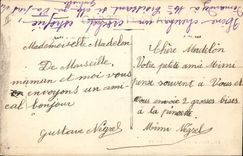 Mademoiselle Madelon
De Marseille,
maman et moi vous
envoyons un ami-
cal bonjour
Gustave Négrel
Chère Madelon
Votre petite amie Mimi
pense souvent à Vous et
Vous envoie 2 grosses bises
à la pincette
Mimi Négrel